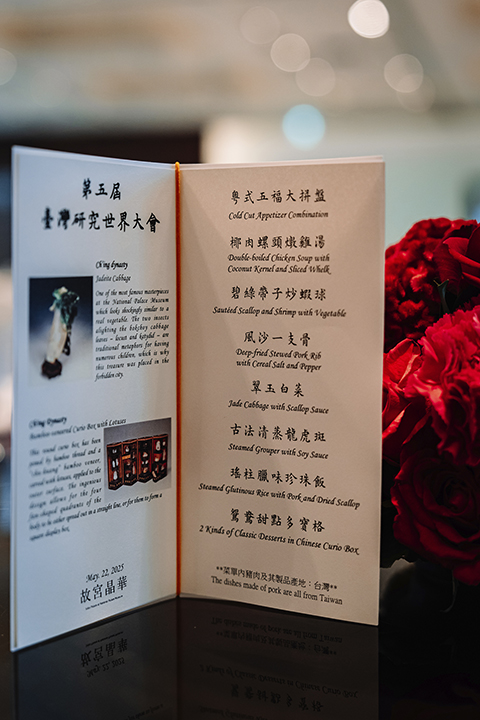 第五屆
臺灣研究世界大會
Ch'ing dynasty
Jadeite Cabbage
One of the most famous masterpieces
at the National Palace Museum
which looks shockingly similar to a
real vegetable. The two insects
alighting the bokchoy cabbage
leaves – locust and katydid – are
traditional metaphors for having
numerous children, which is why
this treasure was placed in the
forbidden city.
Ch'ing Dynasty
Bamboo-veneered Curio Box with Lotuses
This round curio box, has been
joined by bamboo thread and a
bamboo veneer,
carved with lotuses, applied to the
outer surface. The ingenious
design allows for the four
fan-shaped quadrants of the
body to be either spread out in a straight line, or for them to form a
square display box.
May. 22, 2025
故宮晶華
粵式五福大拼盤
Cold Cut Appetizer Combination
椰肉螺頭燉雞湯
Double-boiled Chicken Soup with
Coconut Kernel and Sliced Whelk
碧綠帶子炒蝦球
Sautéed Scallop and Shrimp with Vegetable
風沙一支骨
Deep-fried Stewed Pork Rib
with Cereal Salt and Pepper
翠玉白菜
Jade Cabbage with Scallop Sauce
古法清蒸龍虎斑
Steamed Grouper with Soy Sauce
瑤柱臘味珍珠飯
Steamed Glutinous Rice with Pork and Dried Scallop
鴛鴦甜點多寶格
2 Kinds of Classic Desserts in Chinese Curio Box
**菜單內豬肉及其製品產地：台灣**
The dishes made of pork are all from Taiwan